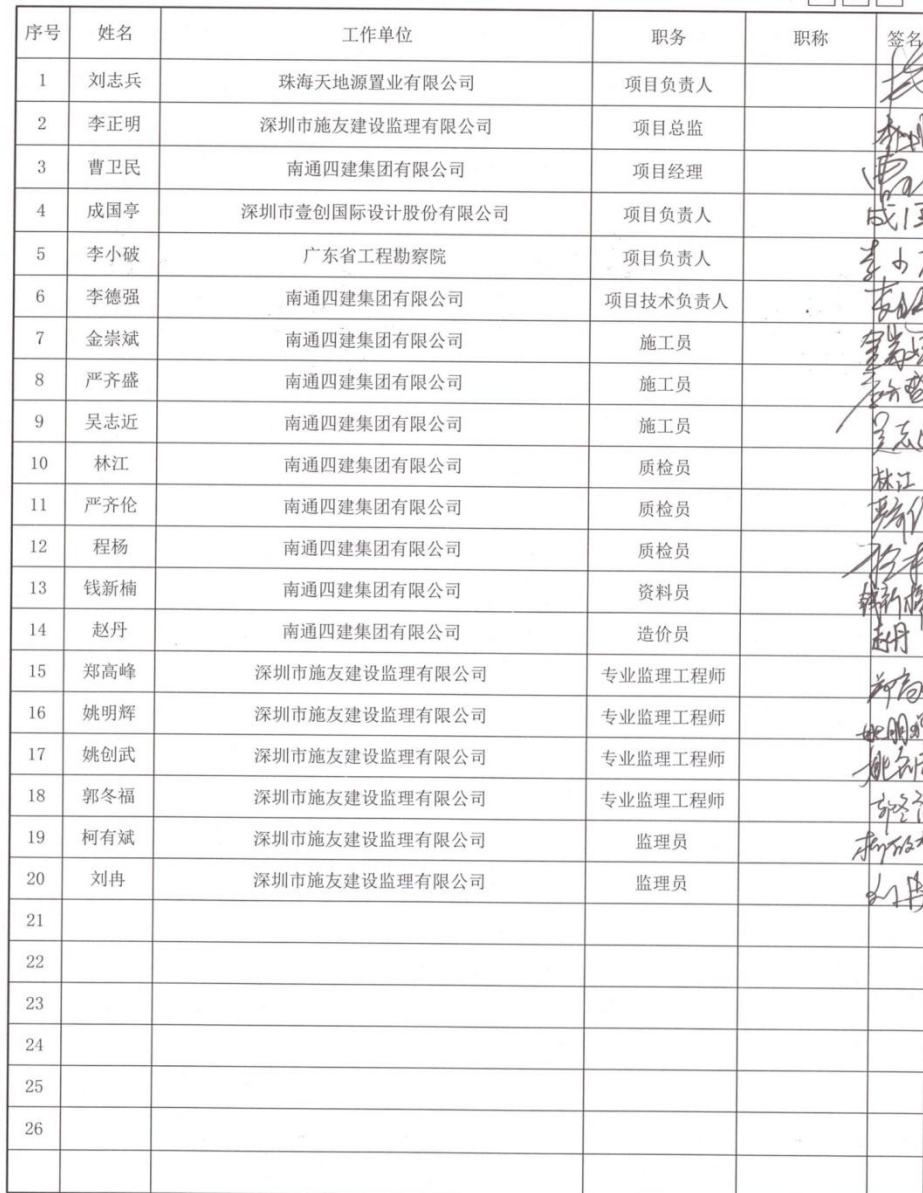 序号 姓名 工作单位 职务 职称 签名
1 刘志兵 珠海天地源置业有限公司 项目负责人
2 李正明 深圳市施友建设监理有限公司 项目总监
3 曹卫民 南通四建集团有限公司 项目经理
4 成国亭 深圳市壹创国际设计股份有限公司 项目负责人
5 李小破 广东省工程勘察院 项目负责人 李小
6 李德强 南通四建集团有限公司 项目技术负责人
7 金崇斌 南通四建集团有限公司 施工员
8 严齐盛 南通四建集团有限公司 施工员
9 吴志近 南通四建集团有限公司 施工员 吴志
10 林江 南通四建集团有限公司 质检员 林江
11 严齐伦 南通四建集团有限公司 质检员
12 程杨 南通四建集团有限公司 质检员
13 钱新楠 南通四建集团有限公司 资料员 钱新楠
14 赵丹 南通四建集团有限公司 造价员 赵丹
15 郑高峰 深圳市施友建设监理有限公司 专业监理工程师 郑高
16 姚明辉 深圳市施友建设监理有限公司 专业监理工程师 姚明辉
17 姚创武 深圳市施友建设监理有限公司 专业监理工程师 姚创武
18 郭冬福 深圳市施友建设监理有限公司 专业监理工程师
19 柯有斌 深圳市施友建设监理有限公司 监理员
20 刘冉 深圳市施友建设监理有限公司 监理员 刘冉
21
22
23
24
25
26